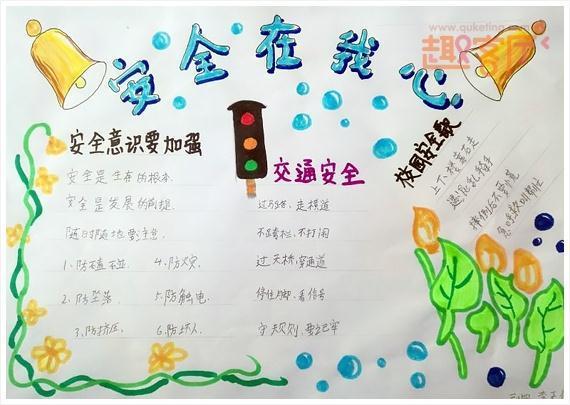 www.quketing.com
安全在我心
安全意识要加强
安全是生存的根本
安全是发展的前提
随时随地要注意
1、防磕碰 4、防火灾
2、防坠落 5、防触电
3、防挤压 6、防坏人
交通安全
过马路、走横道
不跨栏、不打闹
过天桥、穿通道
停住脚、看信号
守规则、要记牢
校园安全歌
上下楼靠右走